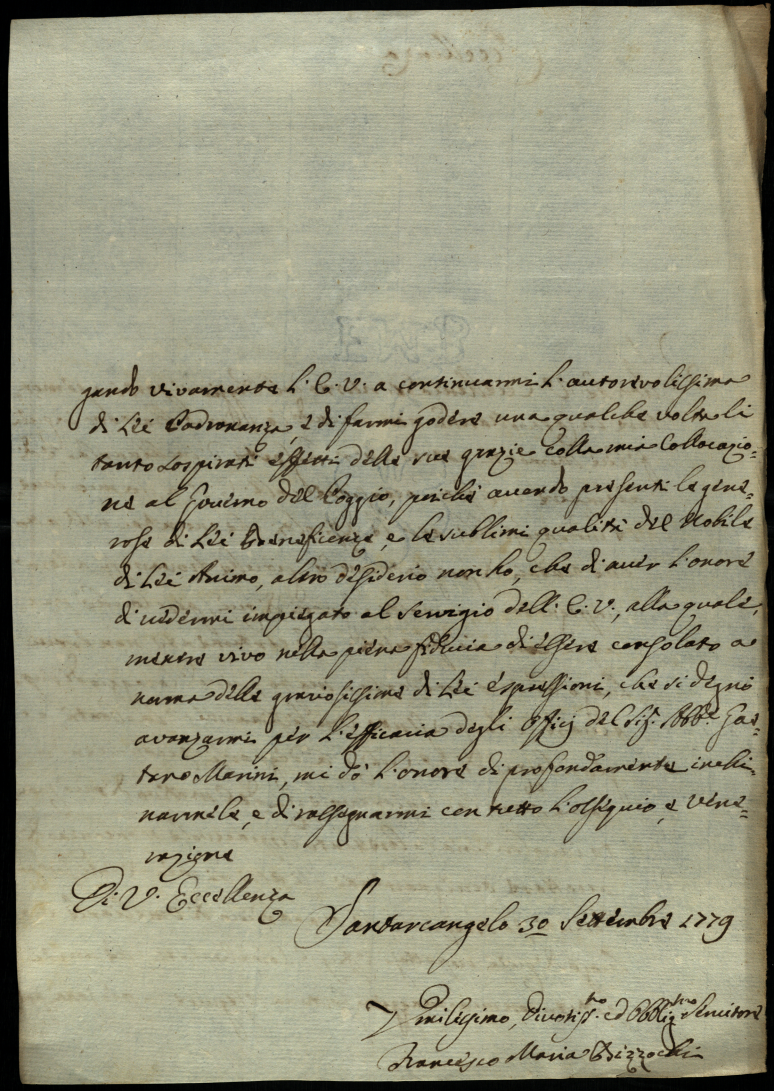 gando vivamente l'E. V. a continuarmi l'autorevolissima
di Lei Padronanza, e di farmi godere una qualche volta li
tanto sospirati effetti delle sue grazie colla mia Collocazio=
ne al Governo del Poggio, poiché avendo presenti le gene=
rose di Lei Beneficenze, e le sublimi qualità del Nobile
di Lei Animo, altro desiderio non ho, che di aver l'onore
di vedermi impiegato al Servigio dell'E. V., alla quale,
mentre vivo nella piena fiducia di essere consolato a
norma delle graziosissime di Lei espressioni, che si degnò
avanzarmi per l'efficacia degli Offizj del Sig.r Abb.e Gae=
tano Marini, mi dò l'onore di profondamente inchi=
narmele, e di rassegnarmi con tutto l'ossequio, e vene=
razione
Di V. Eccellenza
Santarcangelo 30 Settembre 1779
Umilissimo, Divotiss.mo ed Obblig.mo Servitore
Francesco Maria Bizzocchi